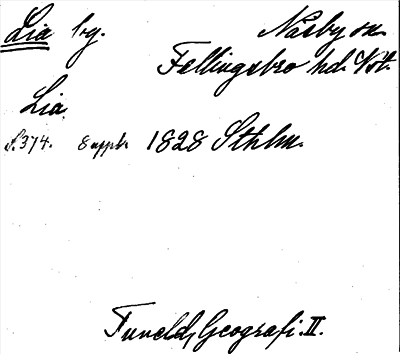 Lia by. Näsby sn.
Fellingsbro hd. Vstm.
Lia
S. 374. 8 uppl. 1828 Sthlm.
Tuneld, Geografi. II.